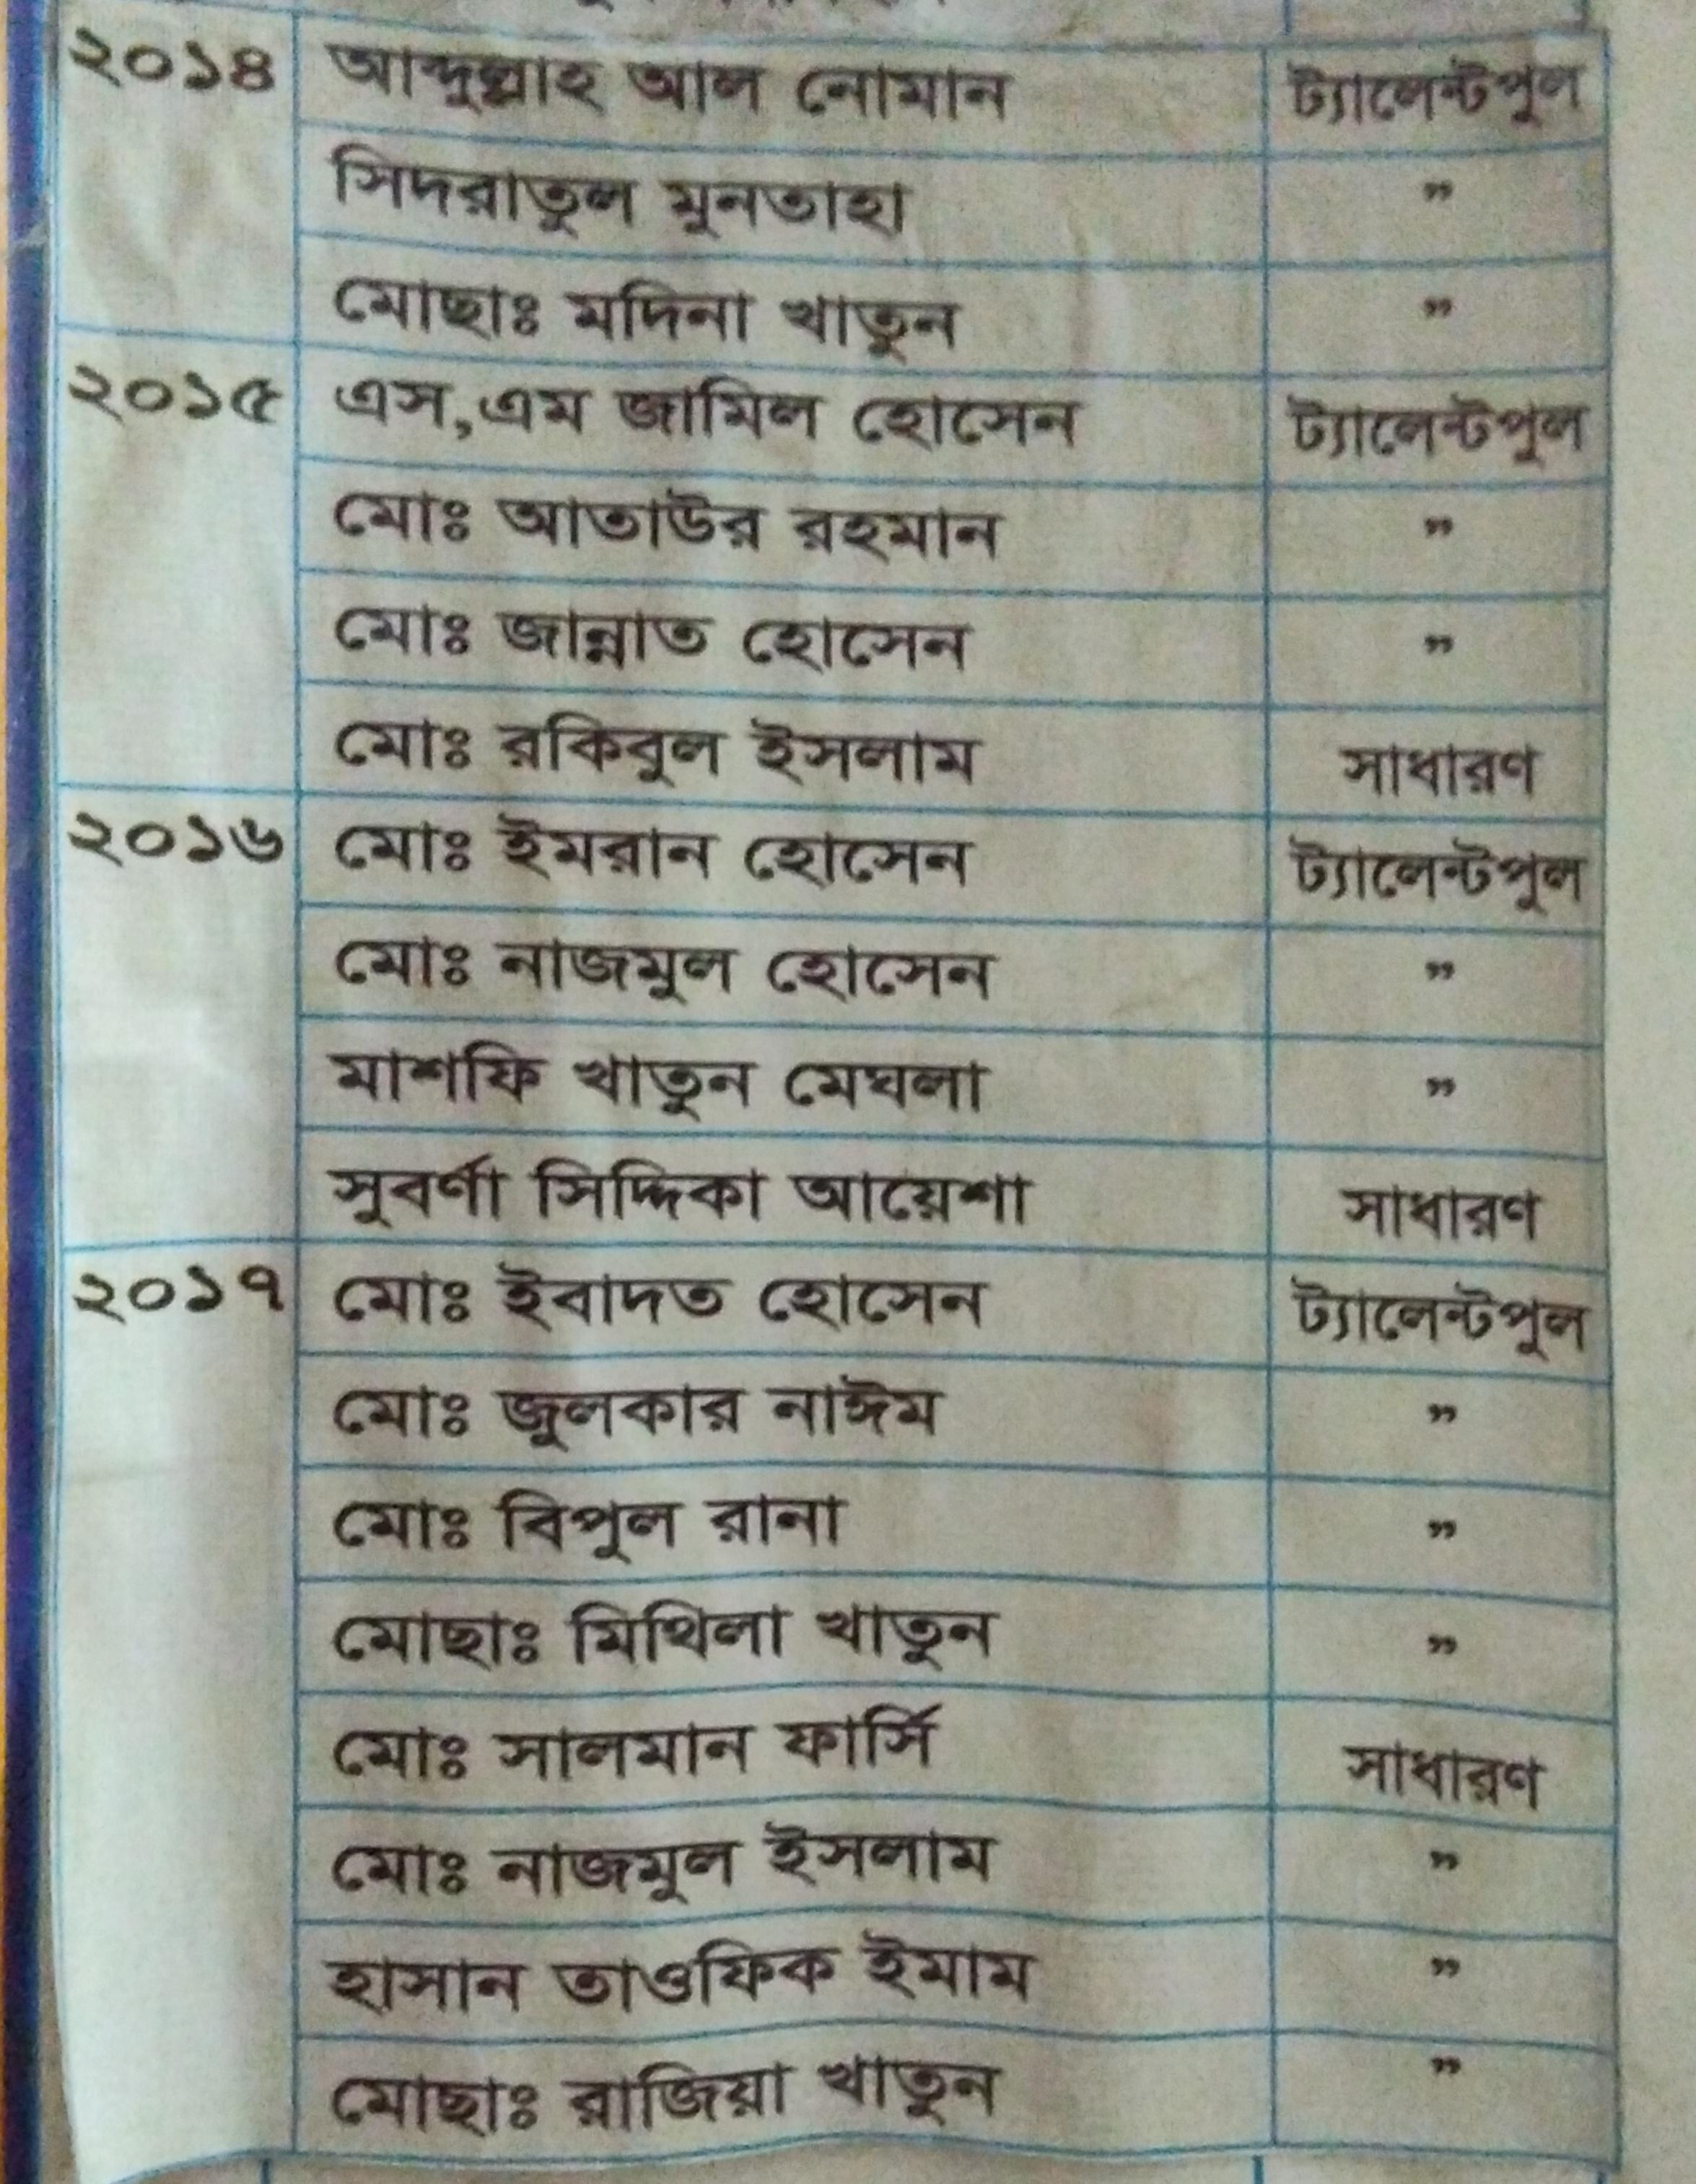 ২০১৪ আব্দুল্লাহ আল নোমান ট্যালেন্টপুল
সিদরাতুল মুনতাহা "
মোছাঃ মদিনা খাতুন "
২০১৫ এস,এম জামিল হোসেন ট্যালেন্টপুল
মোঃ আতাউর রহমান "
মোঃ জান্নাত হোসেন "
মোঃ রকিবুল ইসলাম সাধারণ
২০১৬ মোঃ ইমরান হোসেন ট্যালেন্টপুল
মোঃ নাজমুল হোসেন "
মাশফি খাতুন মেঘলা "
সুবর্ণা সিদ্দিকা আয়েশা সাধারণ
২০১৭ মোঃ ইবাদত হোসেন ট্যালেন্টপুল
মোঃ জুলকার নাঈম "
মোঃ বিপুল রানা "
মোছাঃ মিথিলা খাতুন "
মোঃ সালমান ফার্সি সাধারণ
মোঃ নাজমুল ইসলাম "
হাসান তাওফিক ইমাম "
মোছাঃ রাজিয়া খাতুন "